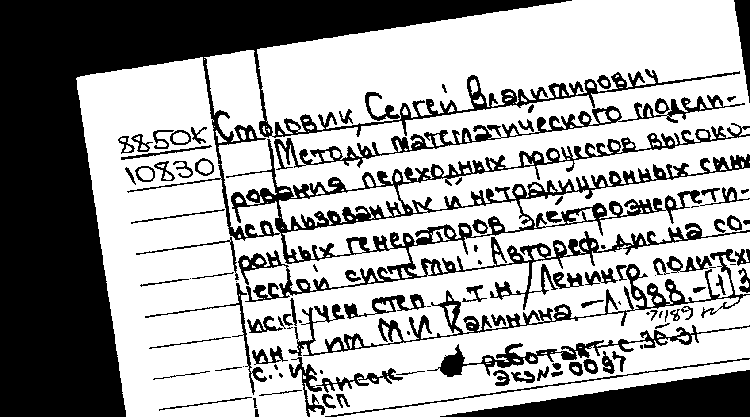 88-50К
10830
Столовик, Сергей Владимирович
Методы математического модели-
рования переходных процессов высоко-
использованных и нетрадиционных синх
ронных генераторов электроэнергети-
ческой системы : Автореф. дис. на со-
иск. учен. степ. д.т.н. / Ленингр. политехн
ин-т им. М.И. Калинина. - Л. 1988. - [1] 3
с. : ил.
Список работ авт.: с. 30-31
ДСП Экз № 0097